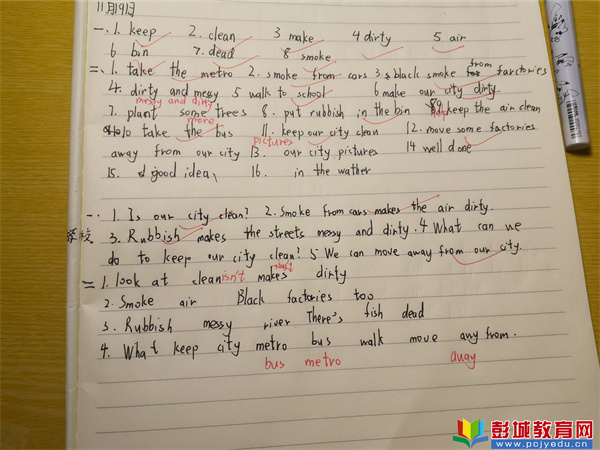 11月19日
一、1. keep 2. clean 3 make 4 dirty 5 air
6 bin 7. dead 8 smoke
二、1. take the metro 2. smoke from cars 3 black smoke from farctories
4. dirty and messy 5 walk to school 6 make our city dirty
messy and dirty
7. plant some trees 8. put rubbish in the bin 9 keep the air clean
more
10 take the bus 11. keep our city clean 12. move some factories
pictures
away from our city 13. our city pictures 14 well done
15. good idea 16. in the wather
一. 1. Is our city clean? 2. Smoke from cars makes the air dirty.
学校 3. Rubbish makes the streets messy and dirty. 4 What can we
do to keep our city clean? 5 We can move away from our city.
二 1. look at clean isn't makes dirty
2. Smoke air Black factories too
3. Rubbish messy river There's fish dead
4. What keep city metro bus walk move any from.
bus metro away
彭城教育网
www.pcjyedu.cn